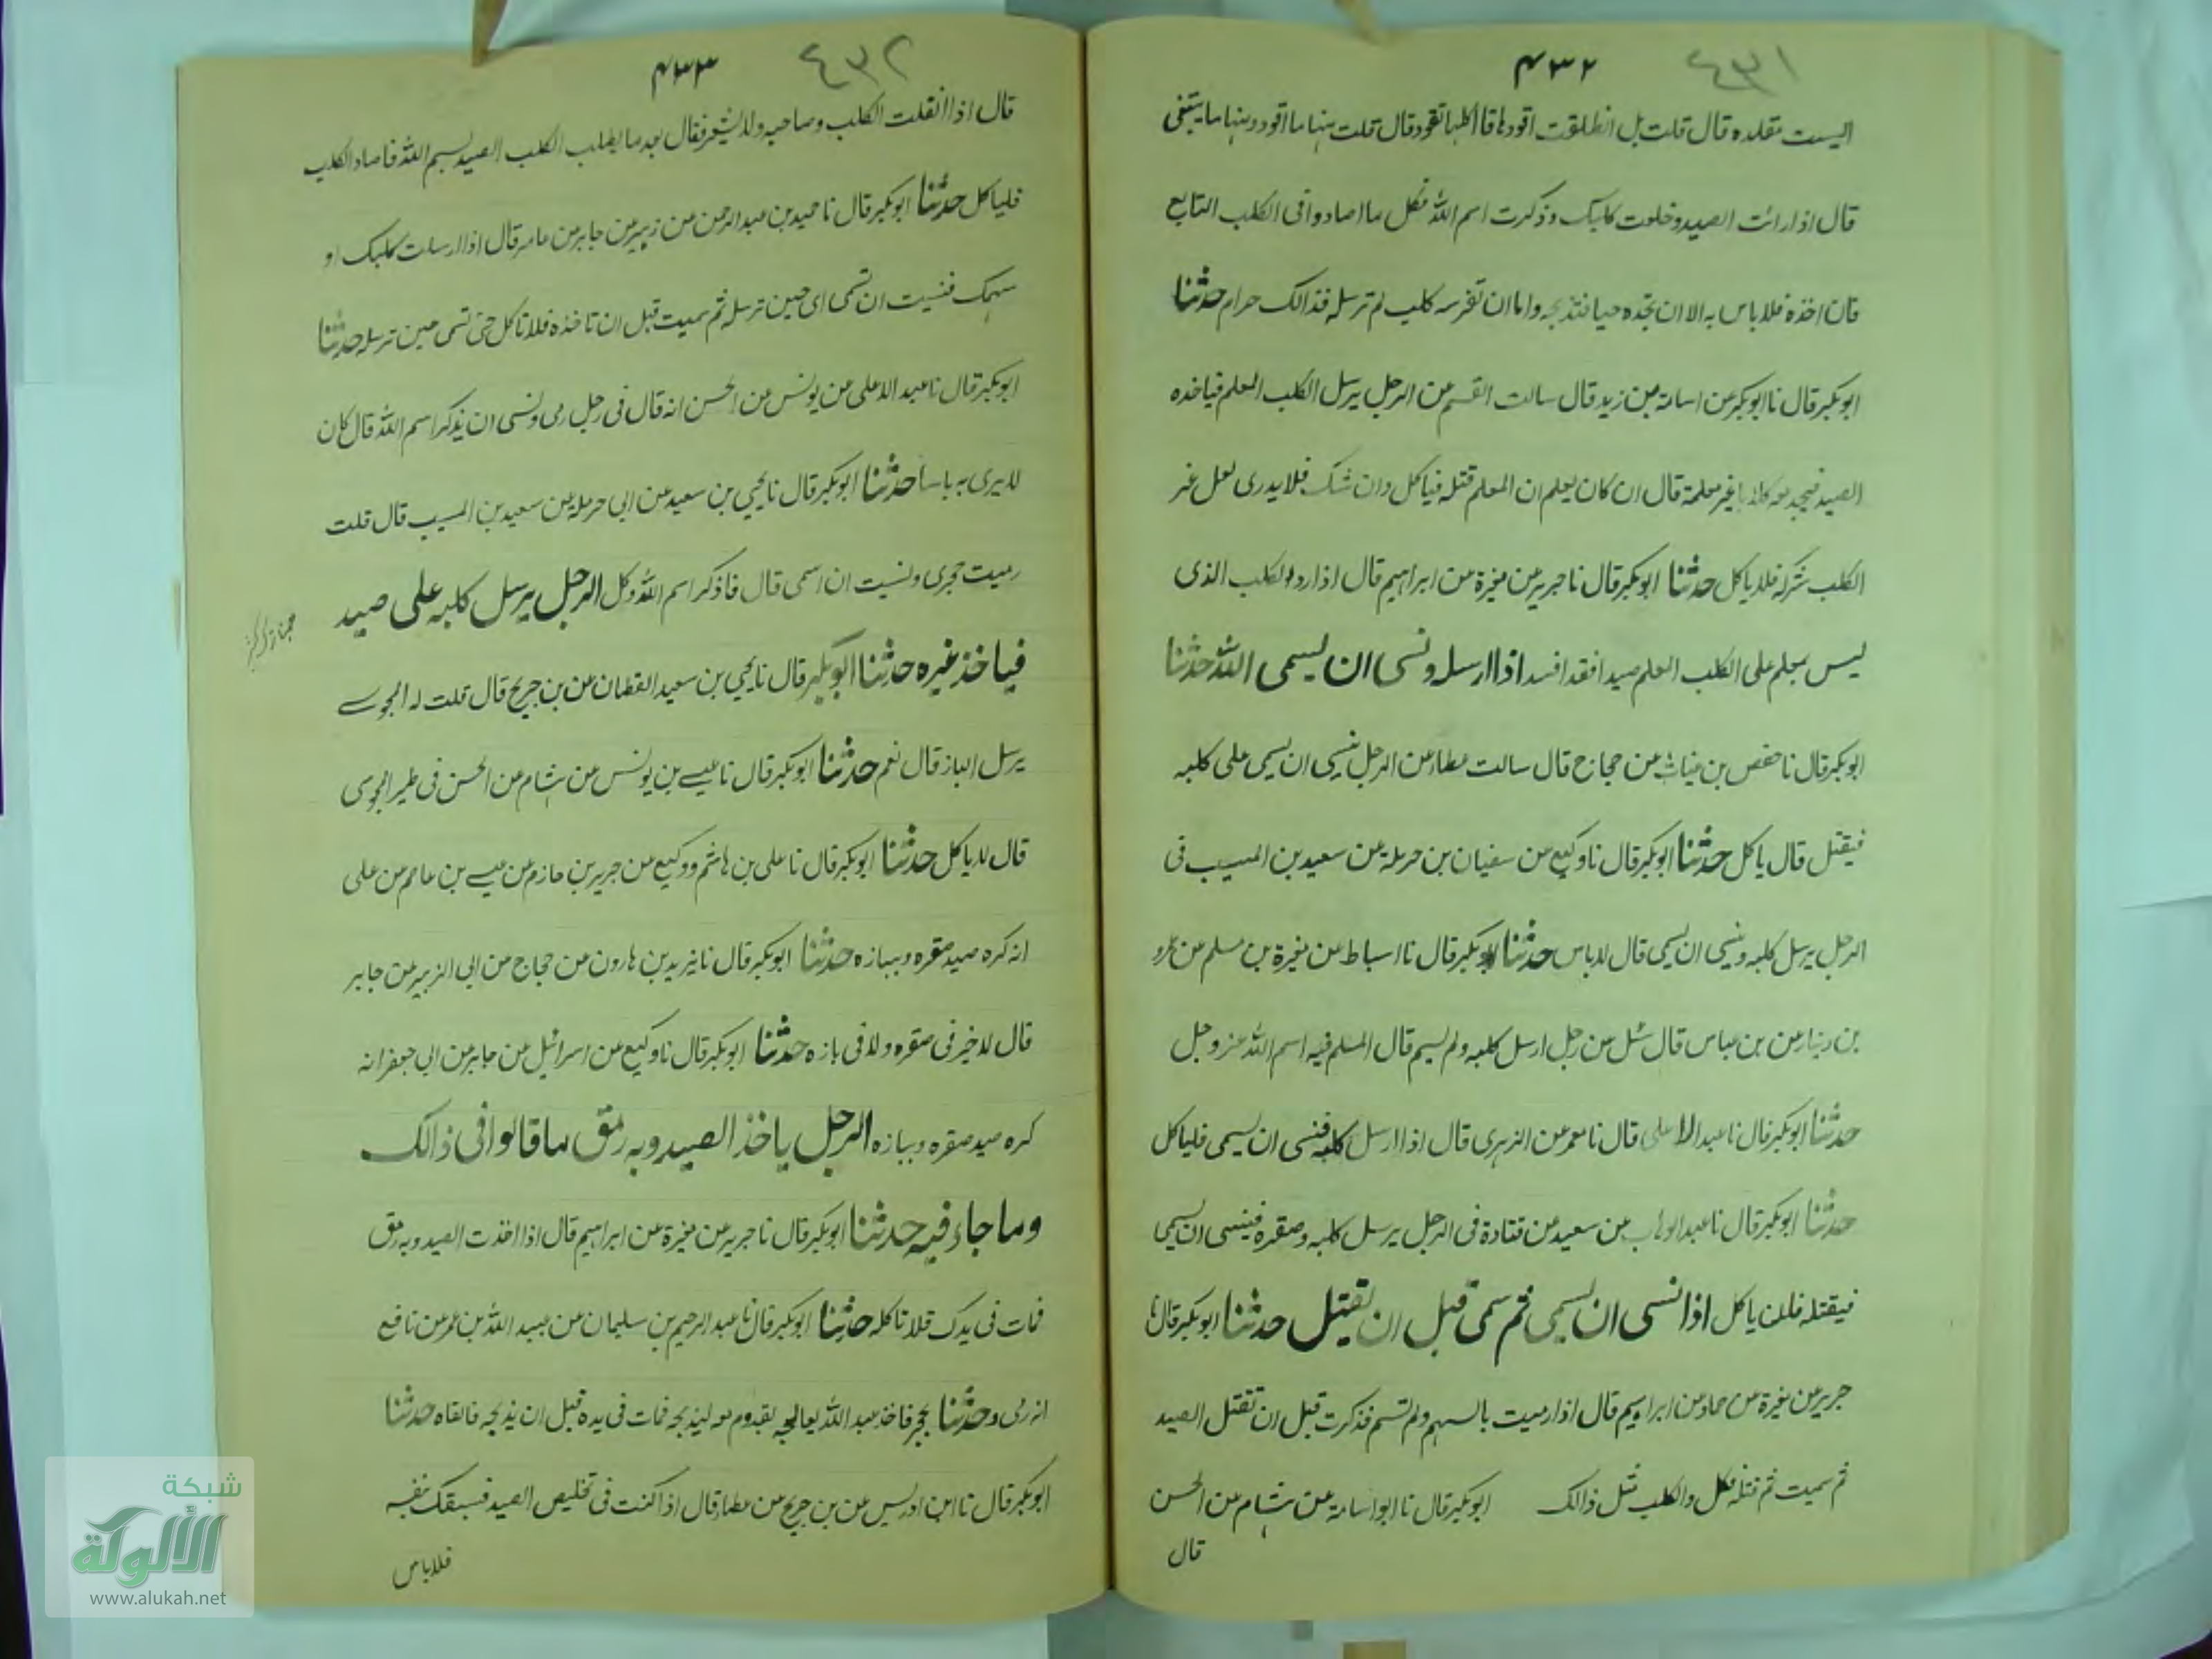 ٤٣١
٤٣٢
اليست مقلده قال قلت بل انطلقت اقودها قال اكلها تقود قال قلت منها ما اقود ومنها ما يتبعنى
قال اذا رائت الصيد وخلعت كلبك وذكرت اسم الله فكل ما اصاد وافى الكلب التابع
فان اخذه فلا باس به الا ان تجده حيا فتذبحه واما ان تفرسه كلب لم ترسله فذالك حرام حدثنا
ابوبكر قال نا ابوبكر عن اسامة بن زيد قال سالت القسم عن الرجل يرسل الكلب المعلم فياخذه
الصيد فيجد معه كلابا غير معلمة قال ان كان يعلم ان المعلم قتله فياكل وان شك فلا يدرى لعل غير
الكلب شركه فلا ياكل حدثنا ابوبكر قال نا جرير عن مغيرة عن ابراهيم قال اذا رد الكلب الذى
ليس بمعلم على الكلب المعلم صيدا فقد افسد اذا ارسله ونسى ان يسمى الله حدثنا
ابوبكر قال نا حفص بن غياث عن حجاج قال سالت عطاء عن الرجل ينسى ان يسمى على كلبه
فيقتل قال ياكل حدثنا ابوبكر قال نا وكيع عن سفيان بن حرملة عن سعيد بن المسيب فى
الرجل يرسل كلبه وينسى ان يسمى قال لا باس حدثنا ابوبكر قال نا اسباط عن مغيرة بن مسلم عن عمرو
بن دينار عن بن عباس قال سئل عن رجل ارسل كلبه ولم يسم قال المسلم فيه اسم الله عز وجل
حدثنا ابوبكر قال نا عبد الاعلى قال نا معمر عن الزهرى قال اذا ارسل كلبه فنسى ان يسمى فلياكل
حدثنا ابوبكر قال نا عبد الوهاب عن سعيد عن قتادة فى الرجل يرسل كلبه وصقره فينسى ان يسمى
فيقتله فلن ياكل اذا نسى ان يسمى ثم سمى قبل ان يقتل حدثنا ابوبكر قال نا
جرير عن مغيرة عن حماد عن ابراهيم قال اذا رميت بالسهم ولم تسم فذكرت قبل ان تقتل الصيد
ثم سميت ثم قتله فكل والكلب مثل ذالك ابوبكر قال نا ابو اسامة عن هشام عن الحسن
قال
٤٣٢
٤٣٣
قال اذا انفلت الكلب وصاحبه ولا يشعر فقال بعد ما يطلب الكلب الصيد بسم الله فاصاد الكلب
فلياكل حدثنا ابوبكر قال نا حميد بن عبد الرحمن عن زهير عن جابر عن عامر قال اذا ارسلت كلبك او
سهمك فنسيت ان تسمى اى حين ترسله ثم سميت قبل ان تاخذه فلا تاكل حتى تسمى حين ترسله حدثنا
ابوبكر قال نا عبد الاعلى عن يونس عن الحسن انه قال فى رجل رمى ونسى ان يذكر اسم الله قال كان
لا يرى به باسا حدثنا ابوبكر قال نا يحيى بن سعيد عن ابى حرملة عن سعيد بن المسيب قال قلت
رميت حجرى ونسيت ان اسمى قال فاذكر اسم الله وكل الرجل يرسل كلبه على صيد
فياخذ غيره حدثنا ابوبكر قال نا يحيى بن سعيد القطان عن بن جريج قال قلت له المجوسے
يرسل الباز قال نعم حدثنا ابوبكر قال نا عيسے بن يونس عن هشام عن الحسن فى طير المجوسى
قال لا ياكل حدثنا ابوبكر قال نا على بن هاشم ووكيع عن جرير بن حازم عن عيسے بن عاصم عن على
انه كره صيد صقره وبازه حدثنا ابوبكر قال نا يزيد بن هارون عن حجاج عن ابى الزبير عن جابر
قال لا خير فى صقره ولا فى بازه حدثنا ابوبكر قال نا وكيع عن اسرائيل عن جابر عن ابى جعفر انه
كره صيد صقره وبازه الرجل ياخذ الصيد وبه رمق ما قالوا فى ذالك
وما جاء فيه حدثنا ابوبكر قال نا جرير عن مغيرة عن ابراهيم قال اذا اخذت الصيد وبه رمق
فمات فى يدك فلا تاكله حدثنا ابوبكر قال نا عبد الرحيم بن سليمان عن عبيد الله بن عمر عن نافع
انه رمى و حدثنا بحجر فاخذ عبد الله يعالجه بقدوم معه ليذبحه فمات فى يده قبل ان يذبحه فالقاه حدثنا
ابوبكر قال نا ابن ادريس عن بن جريج عن عطاء قال اذا كنت فى تخليص الصيد فسبقك بنفسه
فلا باس
شبكة
الألوكة
www.alukah.net